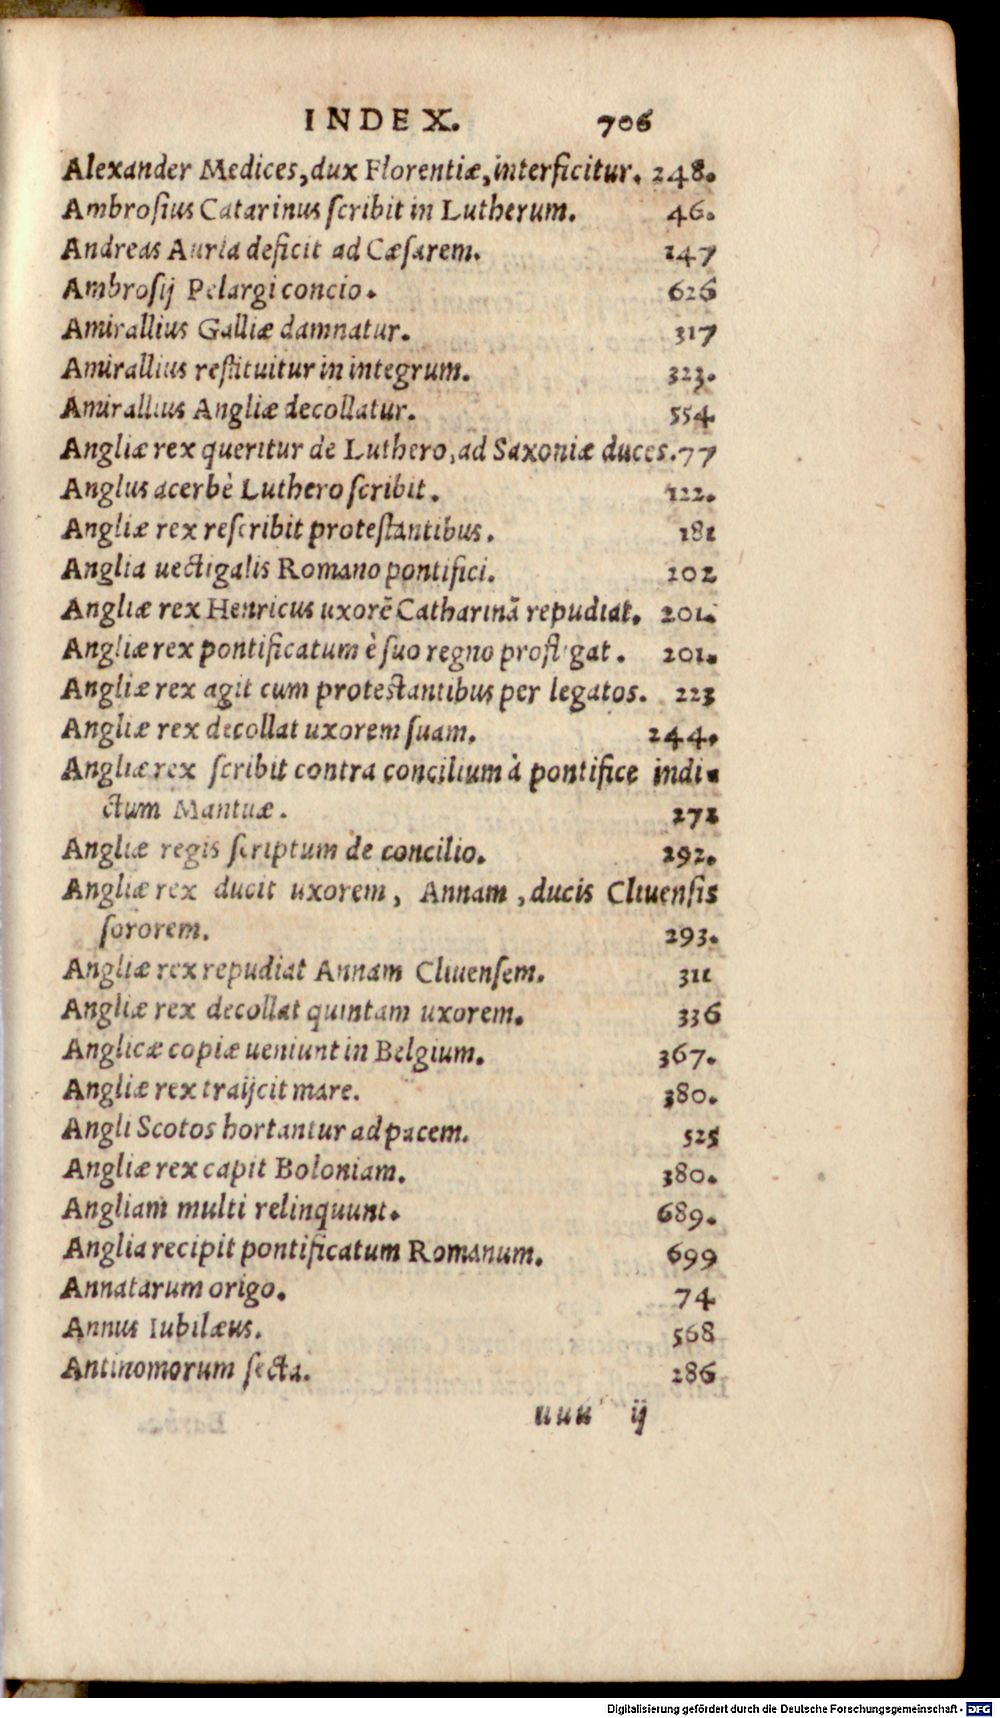 INDEX. 706
Alexander Medices, dux Florentiæ, interficitur. 248.
Ambroſius Catarinus ſcribit in Lutherum. 46.
Andreas Auria deficit ad Cæſarem. 147
Ambroſij Pelargi concio. 626
Amirallius Galliæ damnatur. 317
Amirallius reſtituitur in integrum. 323.
Amirallius Angliæ decollatur. 554
Angliæ rex queritur de Luthero, ad Saxoniæ duces. 77
Anglus acerbè Luthero ſcribit. 122.
Angliæ rex reſcribit proteſtantibus. 181
Anglia uectigalis Romano pontifici. 202
Angliæ rex Henricus uxorē Catharinā repudiat. 201.
Angliæ rex pontificatum è ſuo regno profligat. 201.
Angliæ rex agit cum proteſtantibus per legatos. 223
Angliæ rex decollat uxorem ſuam. 244.
Angliæ rex ſcribit contra concilium à pontifice indi-
ctum Mantuæ. 272
Angliæ regis ſcriptum de concilio. 292.
Angliæ rex ducit uxorem, Annam, ducis Cliuenſis
ſororem. 293.
Angliæ rex repudiat Annam Cliuenſem. 311
Angliæ rex decollat quintam uxorem. 336
Anglicæ copiæ ueniunt in Belgium. 367.
Angliæ rex traijcit mare. 380.
Angli Scotos hortantur ad pacem. 525
Angliæ rex capit Boloniam. 380.
Angliam multi relinquunt. 689.
Anglia recipit pontificatum Romanum. 699
Annatarum origo. 74
Annus Iubilæus. 568
Antinomorum ſecta. 286
uuu ij
Digitalisierung gefördert durch die Deutsche Forschungsgemeinschaft - DFG